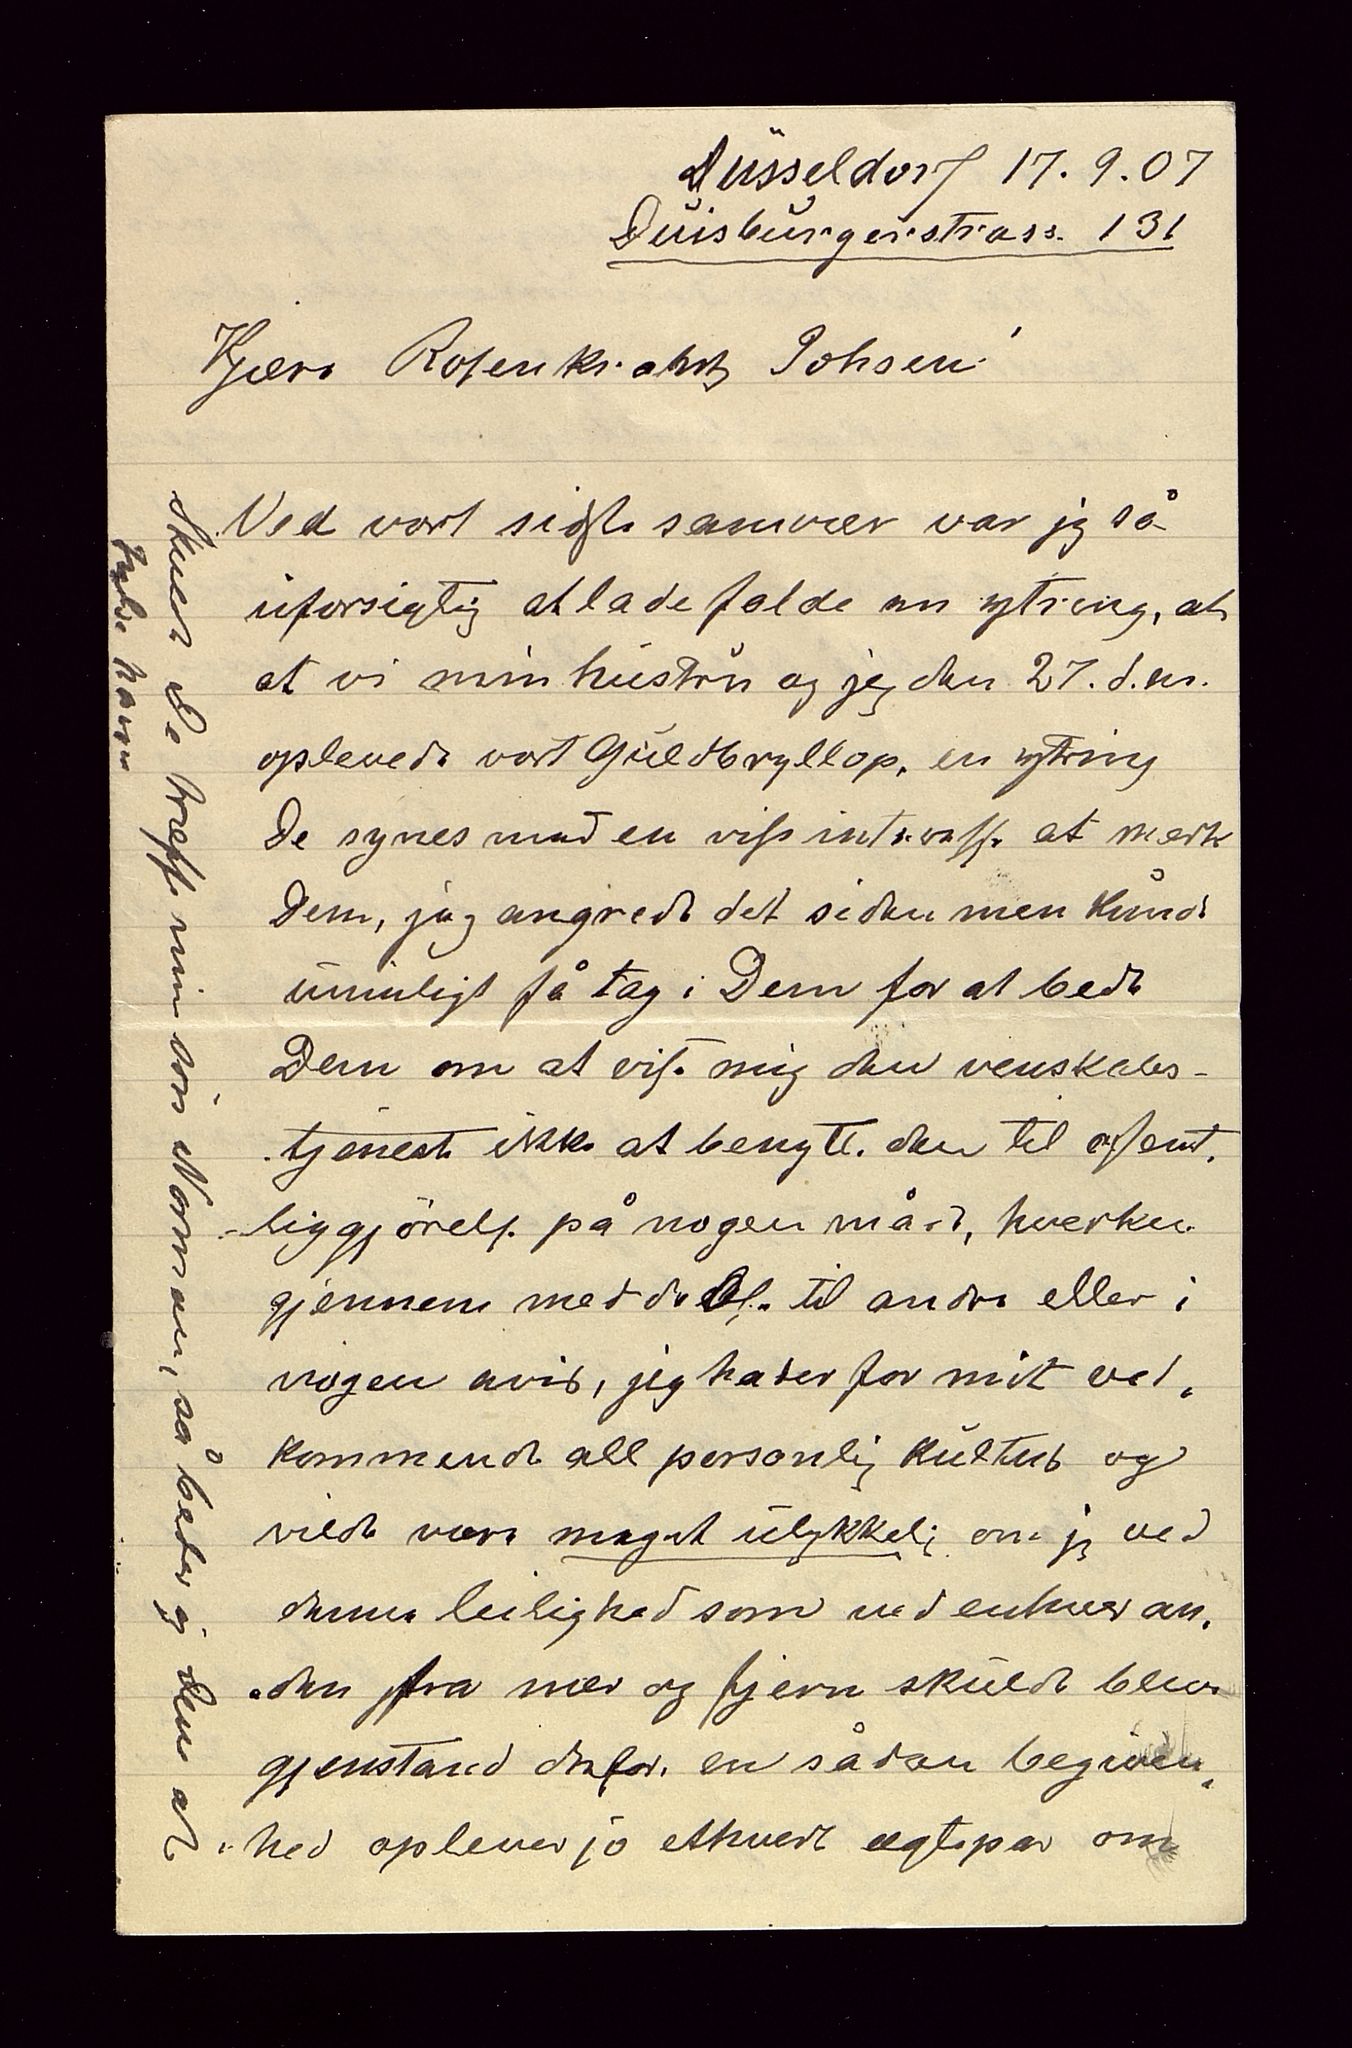 Düsseldorf 17.9.07
Duisburgerstrass. 131
Kjære Rosenkrantz Johnsen!
Ved vort sidste samvær var jeg så
uforsigtig at lade falde en ytring, at
at vi min hustru og jeg den 27. d.m.
oplevede vort Guldbryllop, en ytring
De synes med en viss interesse at mærke
Dem, jeg angrede det siden men kunde
umuligt få tag i Dem for at bede
Dem om at vise mig den venskabs-
tjeneste ikke at benytte den til offent-
liggjörelse på nogen måde, hverken
gjennem meddelelse til andre eller i
nogen avis, jeg hader for mit ved-
kommende all personlig kultus og
vilde være meget ulykkelig om jeg ved
denne leilighed som ved enhver an-
den fra nær og fjern skulde blive
gjenstand derfor. en sådan begiven-
hed oplever jo ethvert ægtepar om
Skuld De træffe min sön Norman, så beder jeg Dem at
hilse ham